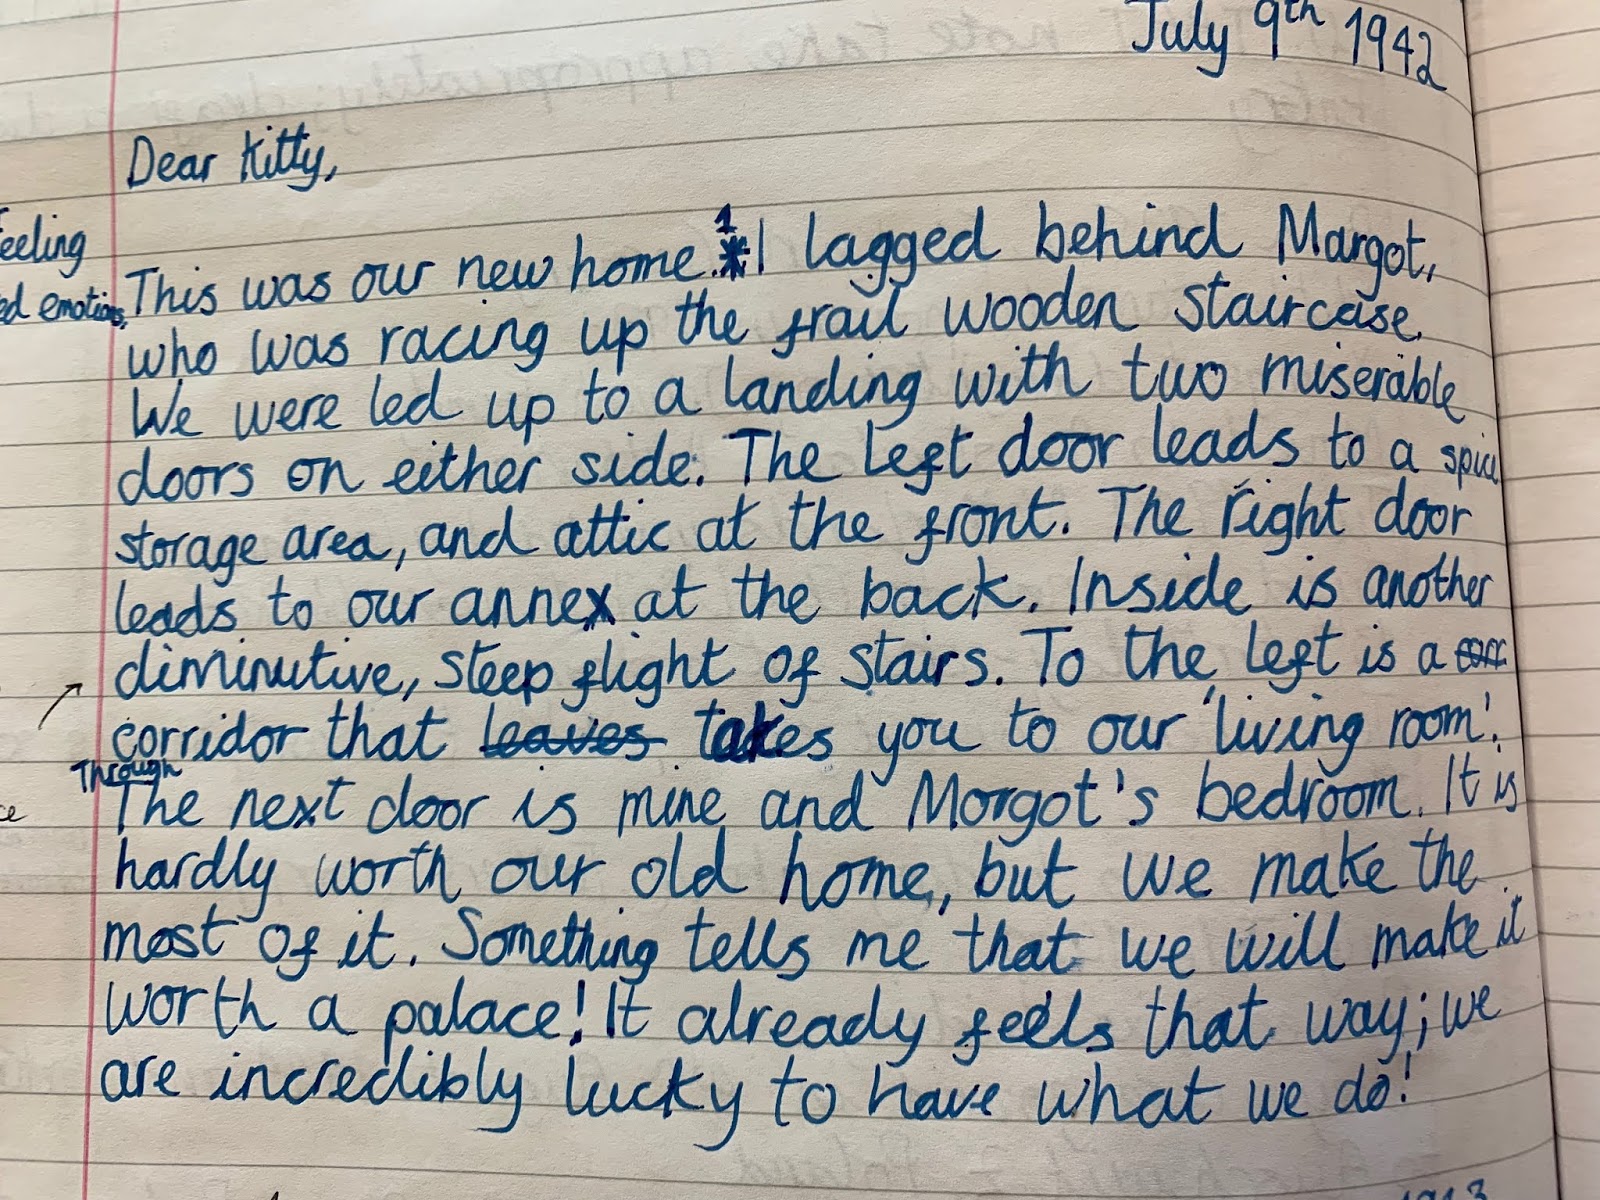 July 9th 1942
Dear Kitty,
eeling
ed emotions.
This was our new home.*1 I lagged behind Margot,
who was racing up the frail wooden staircase.
We were led up to a landing with two miserable
doors on either side. The left door leads to a spice
storage area, and attic at the front. The right door
leads to our annex at the back. Inside is another
diminutive, steep flight of stairs. To the left is a
corridor that leaves takes you to our 'living room'.
Through
The next door is mine and Morgot's bedroom. It is
hardly worth our old home, but we make the
most of it. Something tells me that we will make it
worth a palace! It already feels that way; we
are incredibly lucky to have what we do!